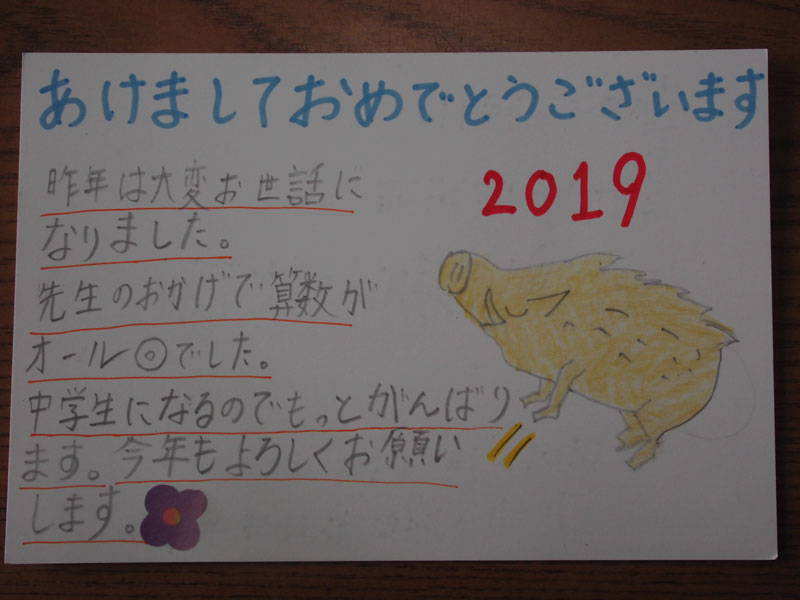 あけましておめでとうございます
2019
昨年は大変お世話に
なりました。
先生のおかげで算数が
オール◎でした。
中学生になるのでもっとがんばり
ます。今年もよろしくお願い
します。